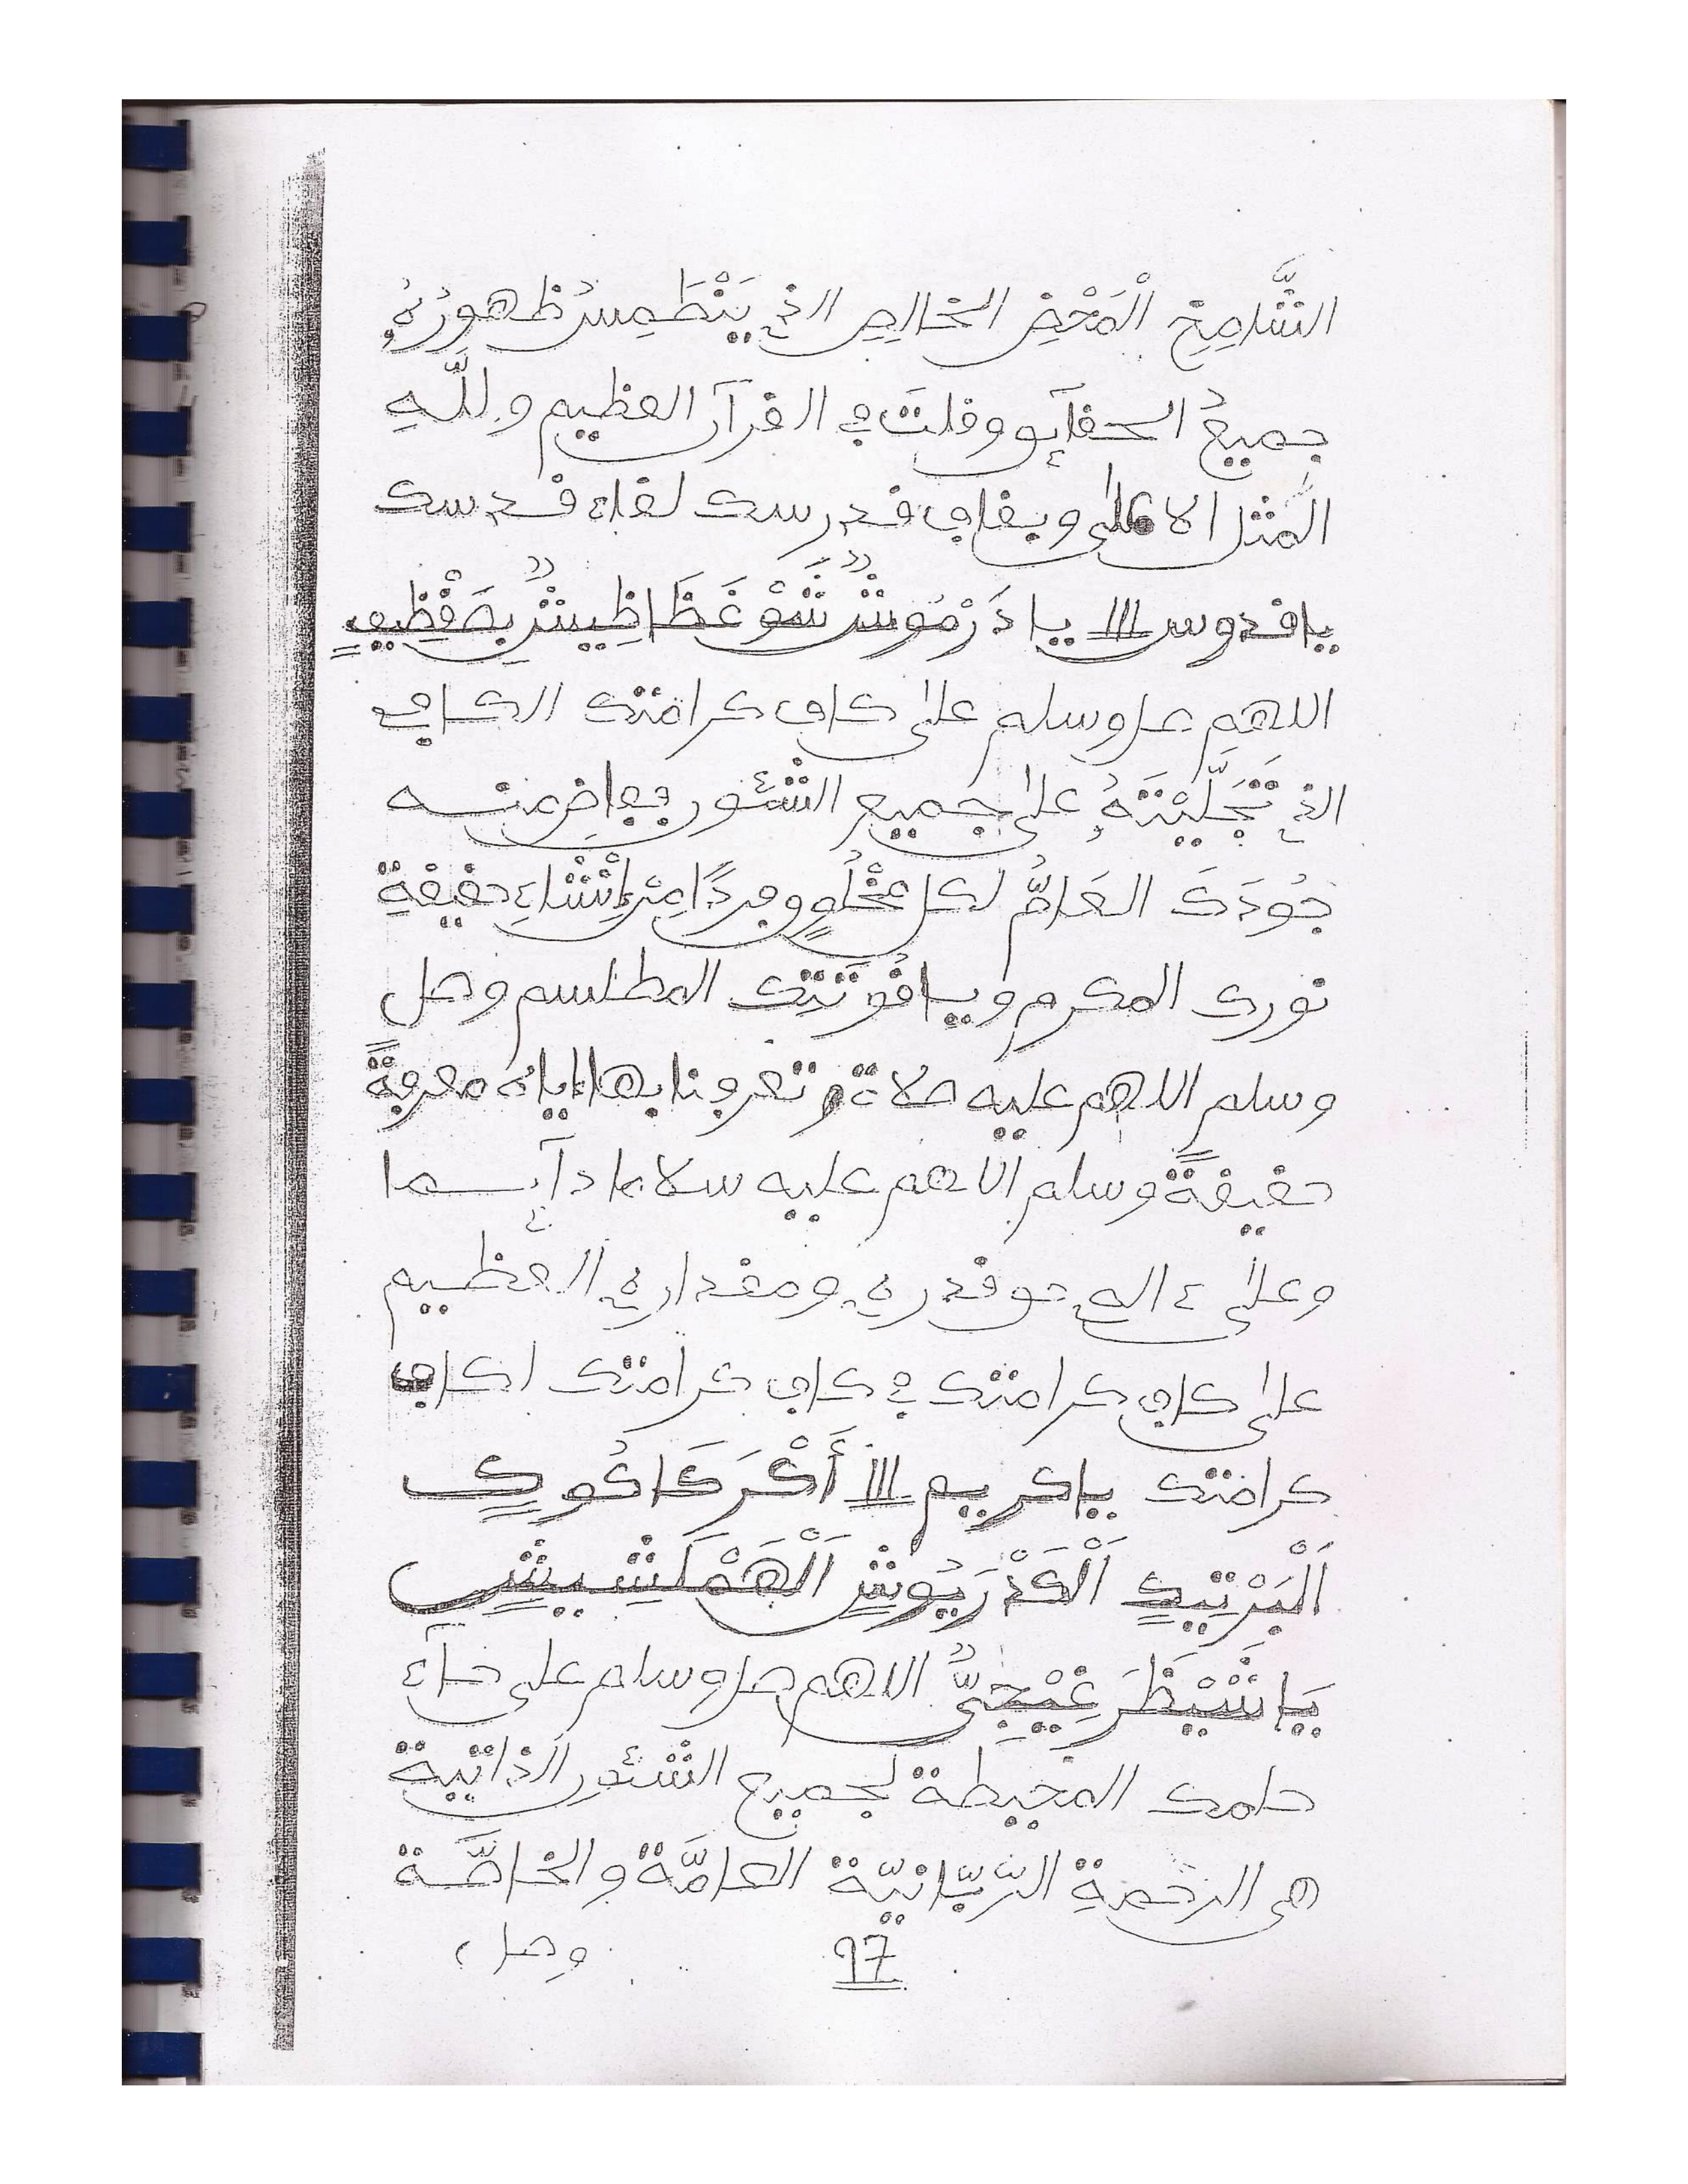 الشَّامِخِ الْمَحْضِ الخالِصِ الذي يَنْطَمِسُ ظهورُهُ
جميعُ الحقآئق وقلتَ في القرآن العظيم وللَّهِ
المثل الاعلى وبقاف قدرسك لقاء قدسك
ياقدوس ااا يا دَرْمُوشٌ شَوْغَظَاظِيشٌ بِصَقْظِيفٍ
اللهم صل وسلم على كاف كرامتك الكافي
الذي تَجَلَّيْتَهُ على جميع الشئون ففاض منه
جُودَكَ العَامُّ لكل مخْلُوقٍ وفردًا مِنْ إنْشاءِ حقيقةِ
نورك المكرم وياقُوتَتِك المطلسم وصل
وسلم اللهم عليه صلاة تعرفنا بها إياه معرفةً
حقيقةً وسلم اللهم عليه سلاما دآئما
وعلى ءاله حق قدره ومقداره العظيم
على كاف كرامتك في كاف كرامتك اكاف
كرامتك ياكريم ااا أَكْرَكَاكُويِكٍ
اَلْبَرْتِيكٍ اَلْكَدْرَيُوشٍ اَلْهَمْلَشِيشٍ
يَاشَيْظَرَغِيْجِيٌّ اللهم صل وسلم على حآء
حلمك المحيطة لجميع الشئون الذاتية
هى الرحمةِ الرّبّانيّة العامّة والخاصَّة
97
وصل